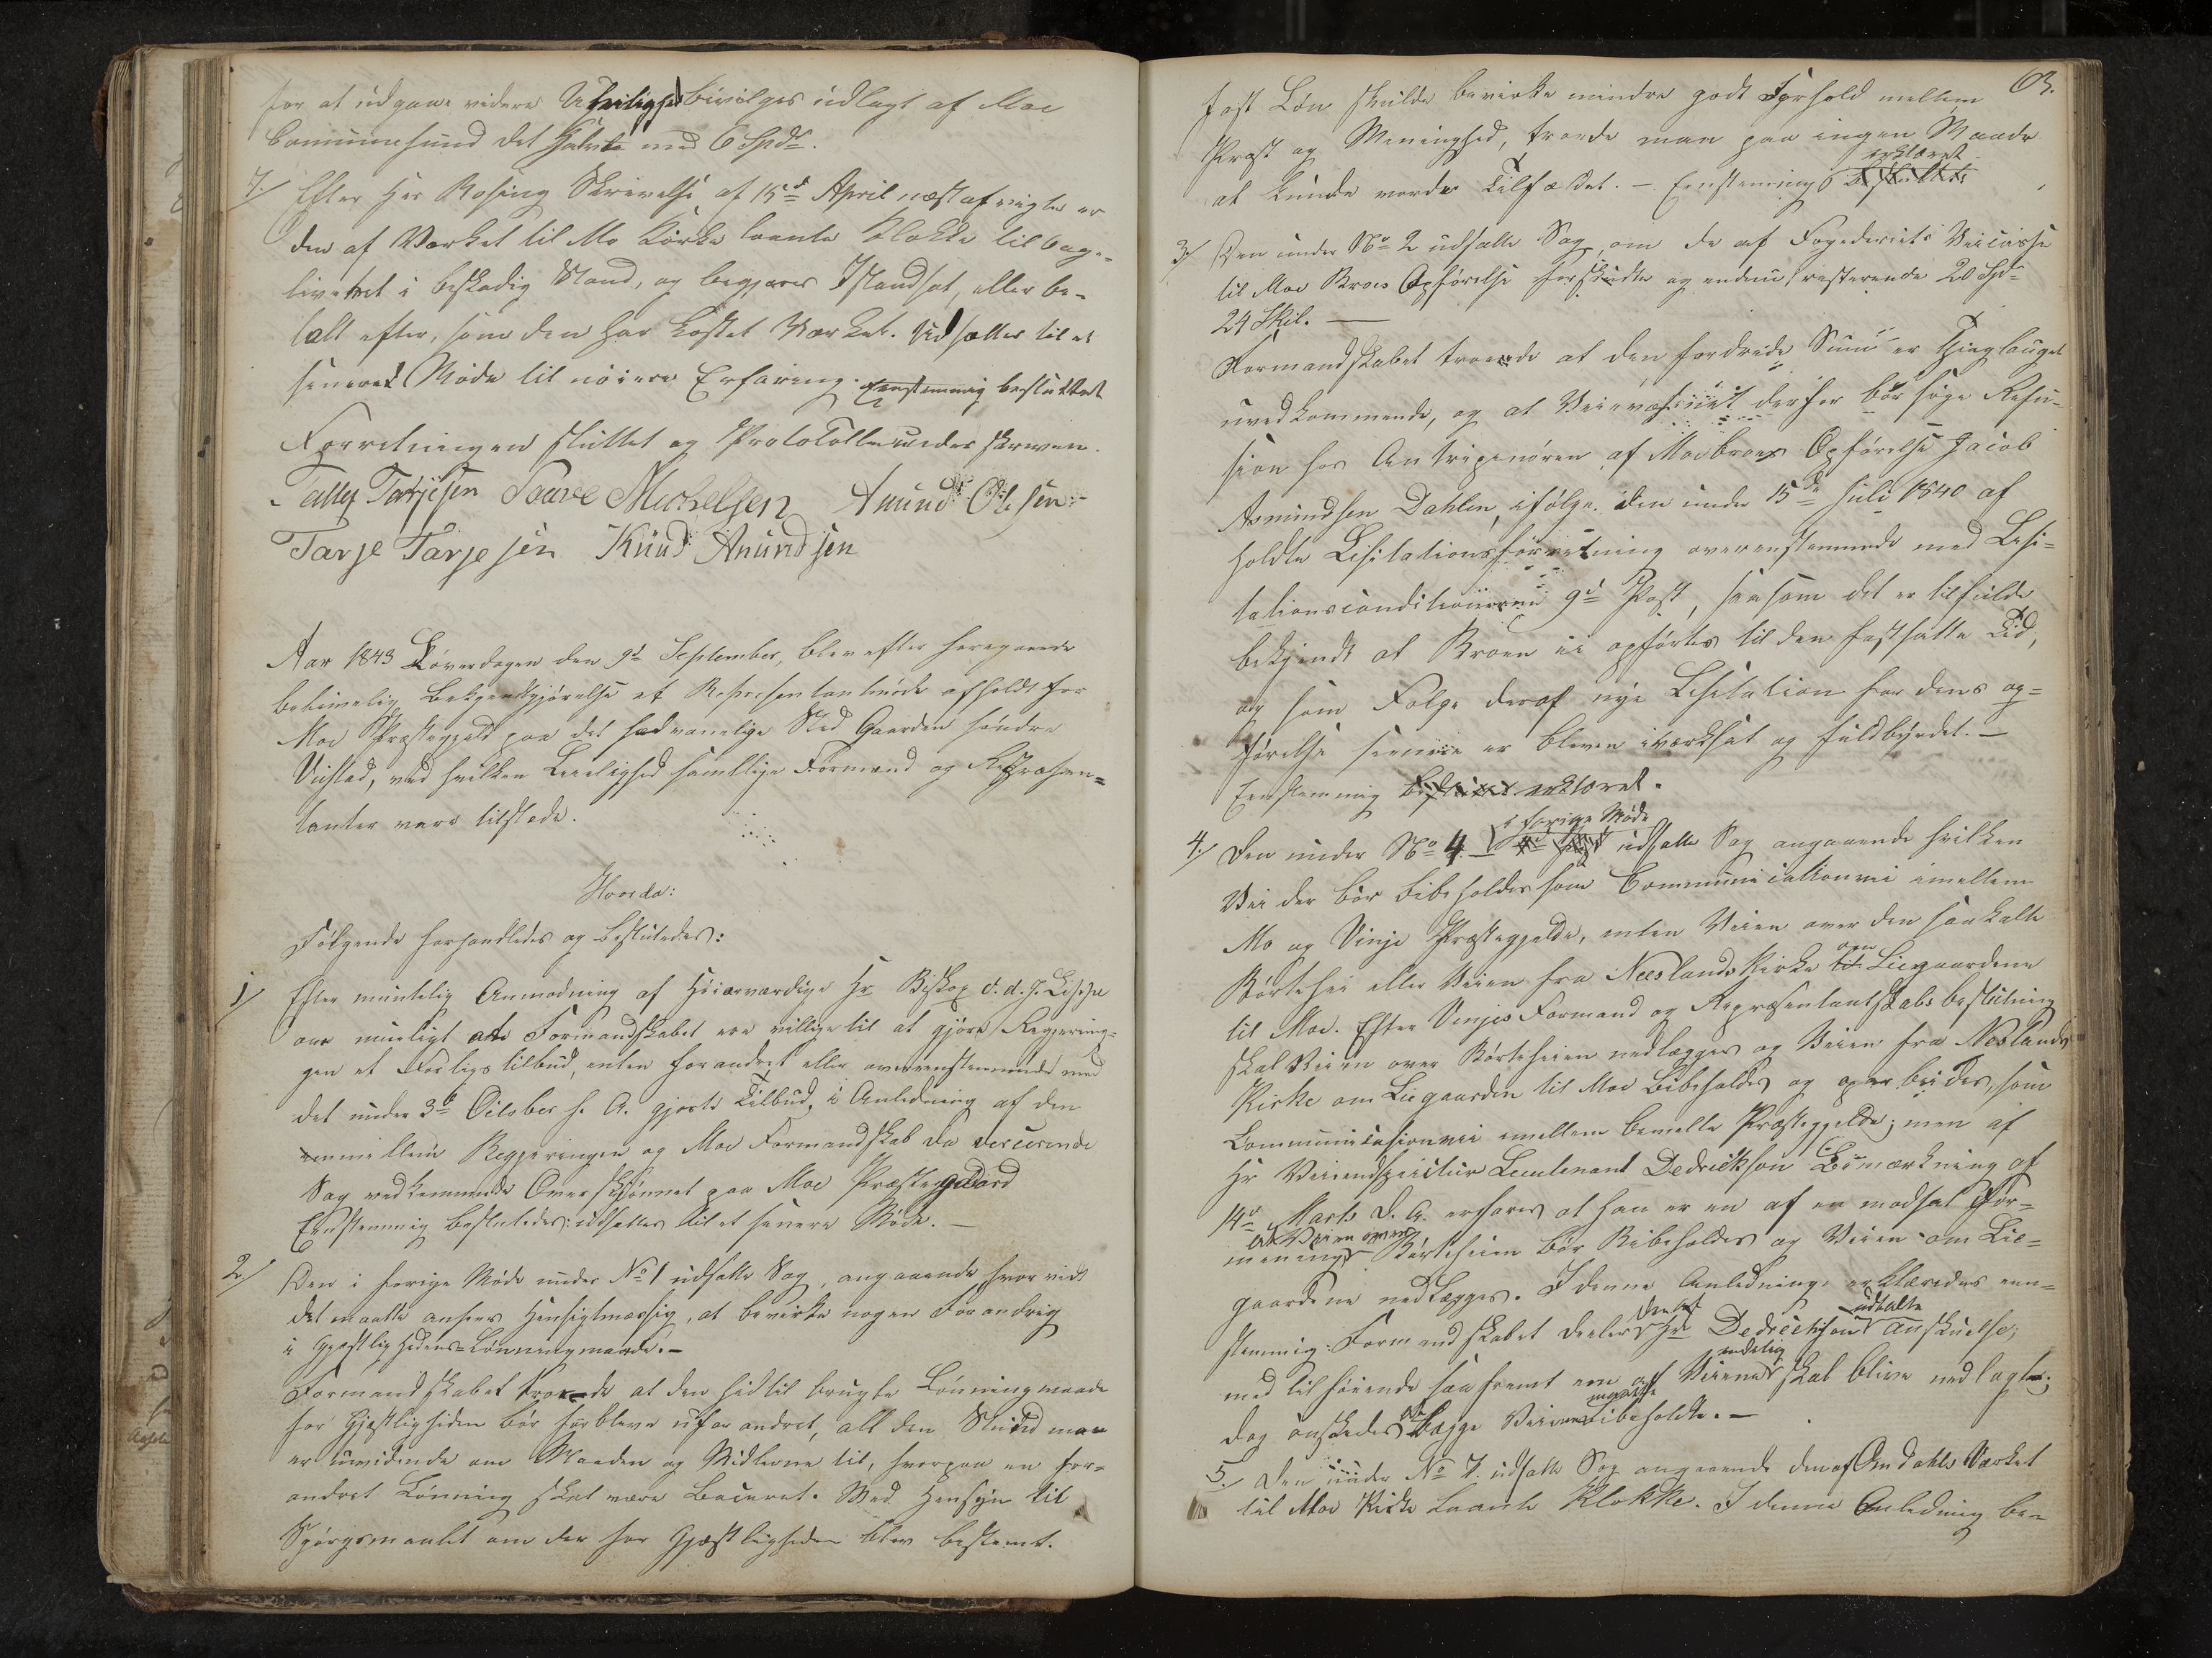 for at udgaae videre Uleilighed bevilges udlagt af Moe
Communesund det Halvte med 6 Spd.
7./ Efter Her Rosing Skrivelse af 15de April næstafvigte er
den af Værket til Mo Kirke laante Klokke tilbage-
leveret i beskadig Stand, og begjæres Istandsat, eller be-
talt efter, som den har kostet Værket. Udsættes til et
senere Møde til nöiere Erfaring. Eenstemmig besluttet
Forretningen sluttet og Protokollen underskreven.
Tallef Tarjesen Saave Michelsen Anund Olsen
Tarje Tarjesen Knud Anundsen
Aar 1843 Löverdagen den 9d September, blev efter foregaaende
betimelig Bekjendtgjörelse et Representantmöde afholdt for
Moe Præstegjeld paa det sædvanelige Sted Gaarden söndre
Viistad, ved hvilken Leilighed samtlige Formænd og Repræsen=
tanter vare tilstede.
Hvorda:
Fölgende forhandledes og besluttedes:
1/ Efter mundtelig Anmodning af Höiærværdige Hr Biskop
om mueligt at Formandskabet ere villige til at gjöre Regjering-
gen et Forligstilbud, enten forandret eller overeenstemmende med
det under 3de October f. A. gjorte Tilbud, i Anledning af den
emmellem Regjeringen og Moe Formandskab da verserende
Sag vedkommende Overskjönnet paa Moe Præstegaard
Eenstemmig besluttedes: udsættes til et senere Möde. —
2./ Den i forige Möde under No 1 udsatte Sag, angaaende hvorvidt
det maatte ansees Hensigtmæssig, at bevirke nogen Forandrig
i Gjestlighedens Lönningmaade. —
Formandskabet troede at den hidtil brugte Lönningmaade
for Gjestligheden bör forbleve uforandret, alt den Stund man
er uvidende om Maaden og Midlerne til, hvorpaa en for=
andret Lönning skal være baseret. Med Hensyn til
Spörgsmaalet om der for Gjestligheden blev bestemt.
63.
fast Lön skulde bevirke mindre godt Forhold mellem
Præst og Menninghed, troede man paa ingen Maade
at kunde vorde Tilfældet. — Eenstemmig erklæret
3/ Den under No 2 udsatte Sag, om de af Fogederiets Veicasse
til Moe Broes Opförelse forskudte og endnu resterende 20 Spd
24 Skil. —
Formandskabet troede at den fordrede Sum er Thinglauget
uvedkommende, og at Veievæsenet derfor bör söge Refu-
sion hos Antripenören af Moebroes Opförelse Jacob
Asmundsen Dahlen, ifölge den under 15de Juli 1840 af
holdte Lisitationsforretning overenstemmede med Lisi=
tationsconditionerne 9d Post, saasom det er tilfulde
bekjendt at Broen ei opförtes til den fastsatte Tid,
og som Fölge deraf nye Lisitation for dens op=
förelse senere er bleven iværksat og fuldbyrdet. —
Eenstemmig erklæret.
4./ Den under No 4 i forige Möde udsatte Sag angaaende hvilken
Vei der bör bibeholdes som Communicationvei imellem
Mo og Vinje Præstegjelde, enten Veien over den saakalte
Börtehei eller Veien fra Neeslands Kirke om Liegaardene
til Moe. Efter Vinjes Formand og Repræsentantskabs beslutning
skal Veien over Börteheien nedlægges og Veien fra Neslands
Kirke om Liegaarden til Moe bibeholdes og oparbeides som
Communicasionvei imellem bemelte Præstegjelde; men af
Hr Veiinspecteur Leutenant Dedrickson Bemærkning af
14d Marts d. A. erfares at han er en af en modsat For=
mening at Veien over Börteheien bör Bibeholdes og Veien om Lie=
gaardene nedlægges. I denne Anledning erklæredes een=
stemmig: Formandskabet deeler den af Hr Dedrickson udtalte Anskuelse,
med tilföiende saafremt en af Veiene endelig skal blive nedlagte;
dog önskedes at begge Veiene bibeholdte. —
5./ Den under No 7. udsatte Sag angaaende den af Omdahls Værket
til Moe Kirke laante Klokke. I denne Anledning be-